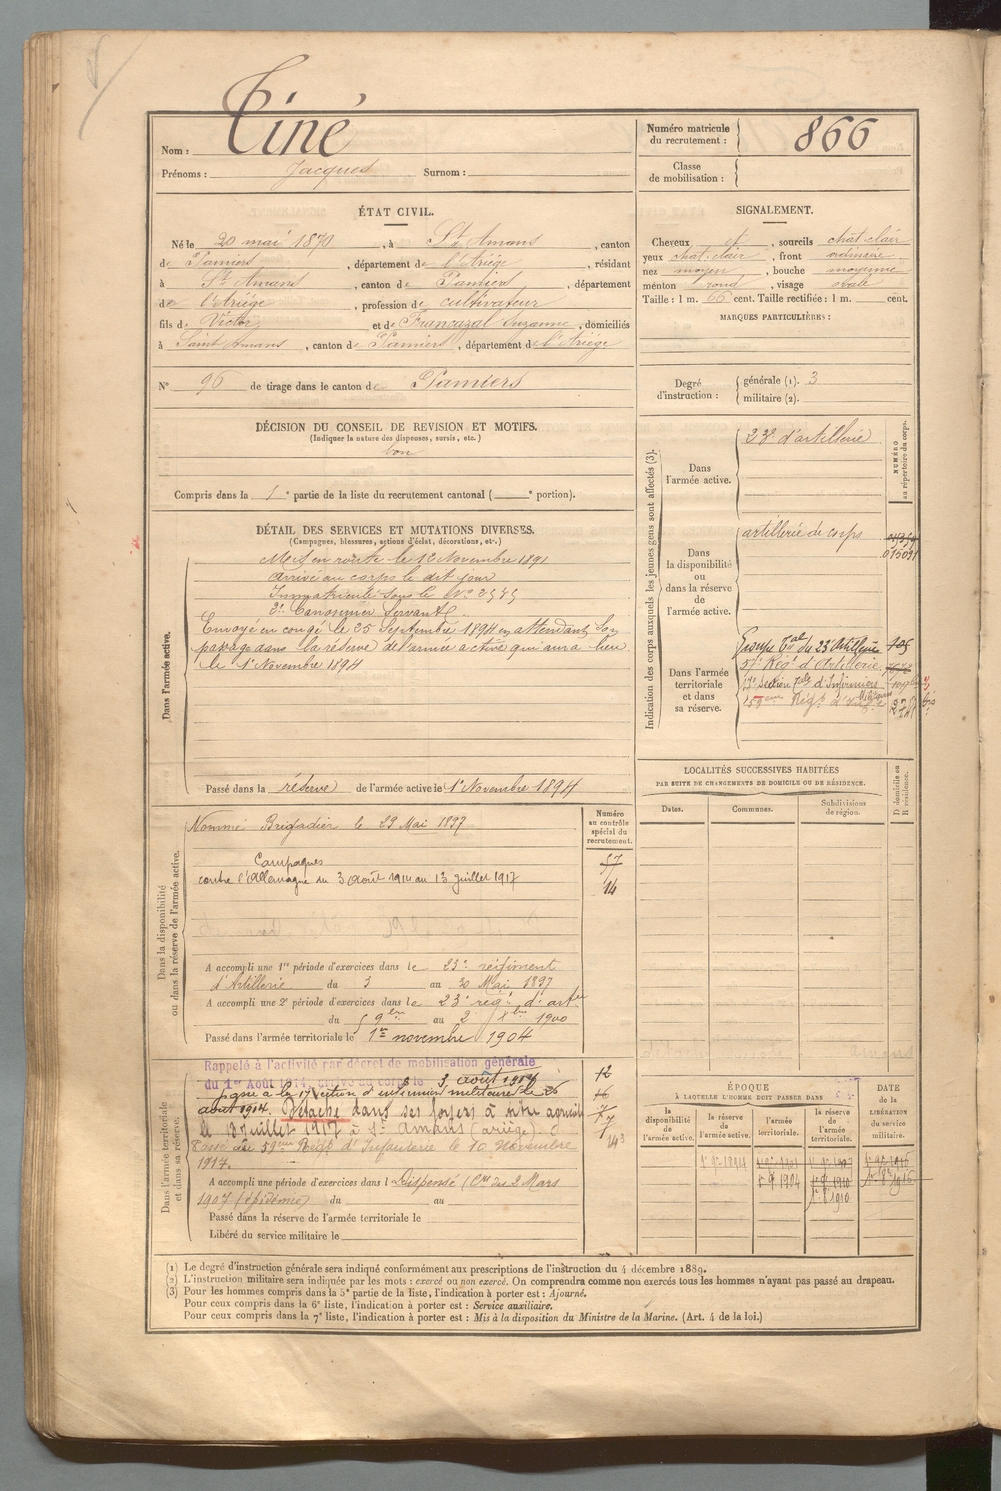 Nom : Tiné
Prénoms : Jacques Surnom :
Numéro matricule du recrutement : 866
Classe de mobilisation :
ÉTAT CIVIL.
Né le 20 mai 1870, à St Amans, canton
de Pamiers, département de l'Ariège, résidant
à St Amans, canton de Pamiers, département
de l'Ariège, profession de cultivateur
fils de Victor et de Francazal Suzanne, domiciliés
à Saint Amans, canton de Pamiers, département de l'Ariège
N° 96 de tirage dans le canton de Pamiers
SIGNALEMENT.
Cheveux et, sourcils chât clair
yeux chât. clair, front ordinaire
nez moyen, bouche moyenne
menton rond, visage ovale
Taille : 1 m. 66 cent. Taille rectifiée : 1 m. cent.
MARQUES PARTICULIÈRES :
Degré d'instruction : générale (1). 3
militaire (2).
DÉCISION DU CONSEIL DE REVISION ET MOTIFS.
(Indiquer la nature des dispenses, sursis, etc.)
bon
Compris dans la 1e partie de la liste du recrutement cantonal ( e portion).
DÉTAIL DES SERVICES ET MUTATIONS DIVERSES.
(Campagnes, blessures, actions d'éclat, décorations, etc.)
Dans l'armée active.
Mis en route le 12 Novembre 1891
arrivé au corps le dit jour
Immatriculé sous le N° 2575
2e Canonnier Servant
Envoyé en congé le 25 Septembre 1894 en attendant son
passage dans la réserve de l'armée active qui aura lieu
le 1er Novembre 1894
Passé dans la réserve de l'armée active le 1er Novembre 1894
Indication des corps auxquels les jeunes gens sont affectés (3).
NUMÉRO au répertoire du corps.
Dans l'armée active.
23e d'artillerie
Dans la disponibilité ou dans la réserve de l'armée active.
artillerie de corps
015091
Dans l'armée territoriale et dans sa réserve.
Groupe Tal du 23e Artillerie 705
57e Régt d'Artillerie
17e Section d'Infirmiers
59eme Régt d'Infie
Dans la disponibilité ou dans la réserve de l'armée active.
Nommé Brigadier le 29 Mai 1897
Campagnes
contre l'Allemagne du 3 Août 1914 au 13 juillet 1917
Numéro au contrôle spécial du recrutement.
57
14
A accompli une 1re période d'exercices dans le 23e régiment
d'Artillerie du 3 au 30 Mai 1897
A accompli une 2e période d'exercices dans le 23e rég. d'arte
du 5 9bre au 2 Xbre 1900
Passé dans l'armée territoriale le 1er novembre 1904
LOCALITÉS SUCCESSIVES HABITÉES
PAR SUITE DE CHANGEMENTS DE DOMICILE OU DE RÉSIDENCE.
Dates.
Communes.
Subdivisions de région.
D domicile ou R résidence.
Dans l'armée territoriale et dans sa réserve.
Rappelé à l'activité par décret de mobilisation générale
du 1er Août 1914, arrivé au corps le 3 août 1914
passé à la 17 section d'infirmiers militaires le 26
août 1914. Détaché dans ses foyers à titre agricole
le 13 juillet 1917 à St Amans (Ariège).
Passé au 59eme Régt d'Infanterie le 10 Novembre
1917.
A accompli une période d'exercices dans l Dispensé (Cre du 2 Mars
1907 (épidémie) du au
Passé dans la réserve de l'armée territoriale le
Libéré du service militaire le
ÉPOQUE
À LAQUELLE L'HOMME DOIT PASSER DANS
la disponibilité de l'armée active.
la réserve de l'armée active.
l'armée territoriale.
la réserve de l'armée territoriale.
DATE de la LIBÉRATION du service militaire.
1er 9bre 1894
(1) Le degré d'instruction générale sera indiqué conformément aux prescriptions de l'instruction du 4 décembre 1889.
(2) L'instruction militaire sera indiquée par les mots : exercé ou non exercé. On comprendra comme non exercés tous les hommes n'ayant pas passé au drapeau.
(3) Pour les hommes compris dans la 5e partie de la liste, l'indication à porter est : Ajourné.
Pour ceux compris dans la 6e liste, l'indication à porter est : Service auxiliaire.
Pour ceux compris dans la 7e liste, l'indication à porter est : Mis à la disposition du Ministre de la Marine. (Art. 4 de la loi.)